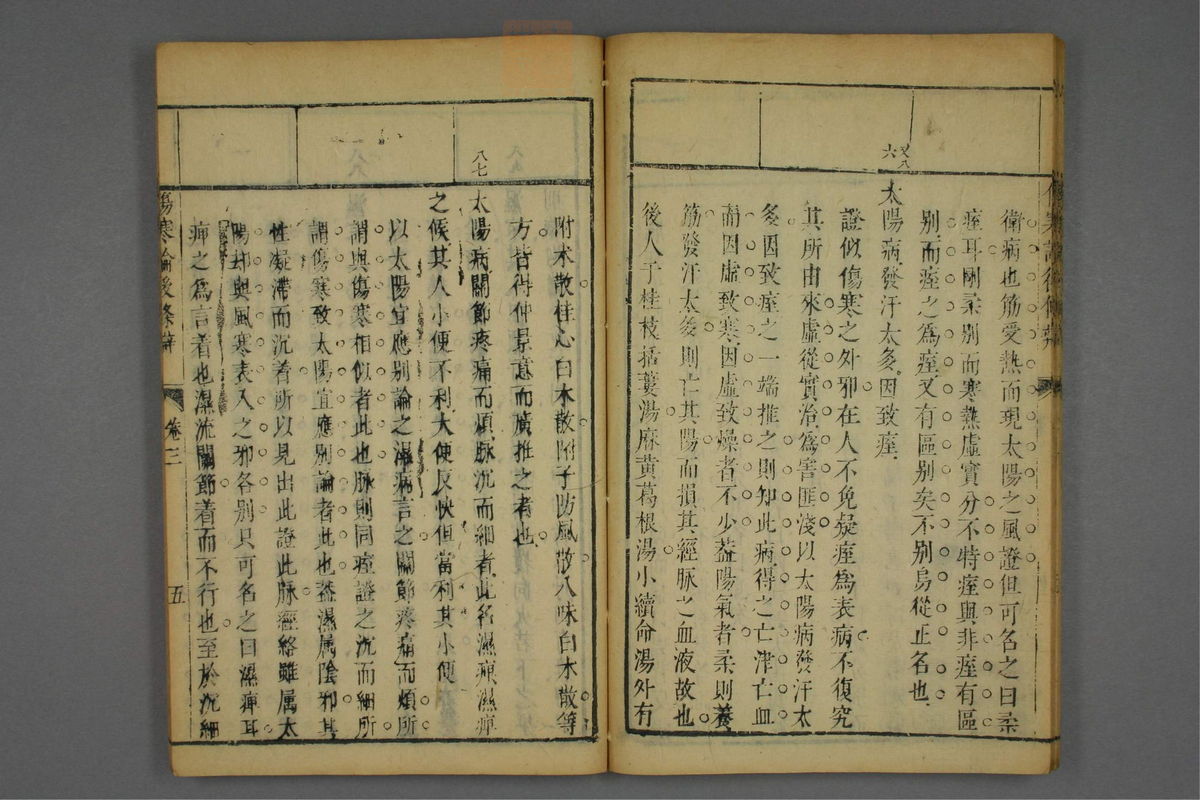 衛病也筋受熱而現太陽之風證但可名之曰柔
痙耳剛柔別而寒熱虛實分不特痙與非痙有區
別而痙之為痙又有區別矣不別烏從正名也
又八
六
太陽病發汗太多因致痙
證似傷寒之外邪在人不免疑痙為表病不復究
其所由來虛從實治為害匪淺以太陽病發汗太
多因致痙之一端推之則知此病得之亡津亡血
而因虛致寒因虛致燥者不少蓋陽氣者柔則養
筋發汗太多則亡其陽而損其經脉之血液故也
後人于桂枝栝蔞湯麻黃葛根湯小續命湯外有
附术散桂心白术散附子防風散八味白术散等
方皆得仲景意而廣推之者也
八七
太陽病關節疼痛而煩脉沉而細者此名濕痺濕痺
之候其人小便不利大便反快但當利其小便
以太陽宜應別論之濕病言之關節疼痛而煩所
謂與傷寒相似者此也脉則同痙證之沉而細所
謂傷寒致太陽宜應別論者此也蓋濕属陰邪其
性凝滯而沉着所以見出此證此脉經絡雖属太
陽却與風寒表入之邪各別只可名之曰濕痺耳
痺之為言着也濕流關節着而不行也至於沉細
傷寒論後條辨
卷三
五